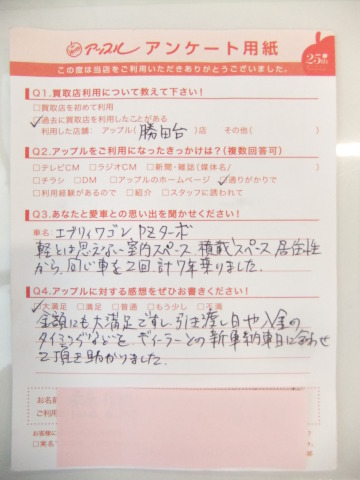 アップル アンケート用紙
25th
この度は当店をご利用いただきありがとうございました。
Q1.買取店利用について教えて下さい!
□買取店を初めて利用
☑過去に買取店を利用したことがある
利用した店舗: アップル( 勝田台 )店 その他( )
Q2.アップルをご利用になったきっかけは?(複数回答可)
□テレビCM □ラジオCM □新聞・雑誌(媒体名/ )
□チラシ □DM □アップルのホームページ ☑通りがかりで
□利用経験があるので □紹介 □スタッフに誘われて
Q3.あなたと愛車との思い出を聞かせください!
車名: エブリィワゴン PZターボ
軽とは思えない室内スペース 積載スペース 居住性
から、同じ車を2回、計7年乗りました。
Q4.アップルに対する感想をぜひお書きください!
☑大満足 □満足 □普通 □もう少し □不満
金額にも大満足ですし、引き渡し日や入金の
タイミングなどを ディーラーとの新車納車日に合わせ
て頂き助かりました。
お名前
ご利用
お客様に
□実名で